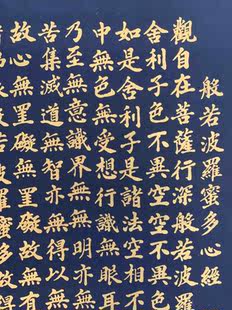 般若波羅蜜多心經
觀自在菩薩行深般若波羅
舍利子色不異空空不異色
如是舍利子是諸法空相不
中無色無受想行識無眼耳
乃至無意識界無無明亦無
苦集滅道無智亦無得以無
故心無罣礙無罣礙故無有